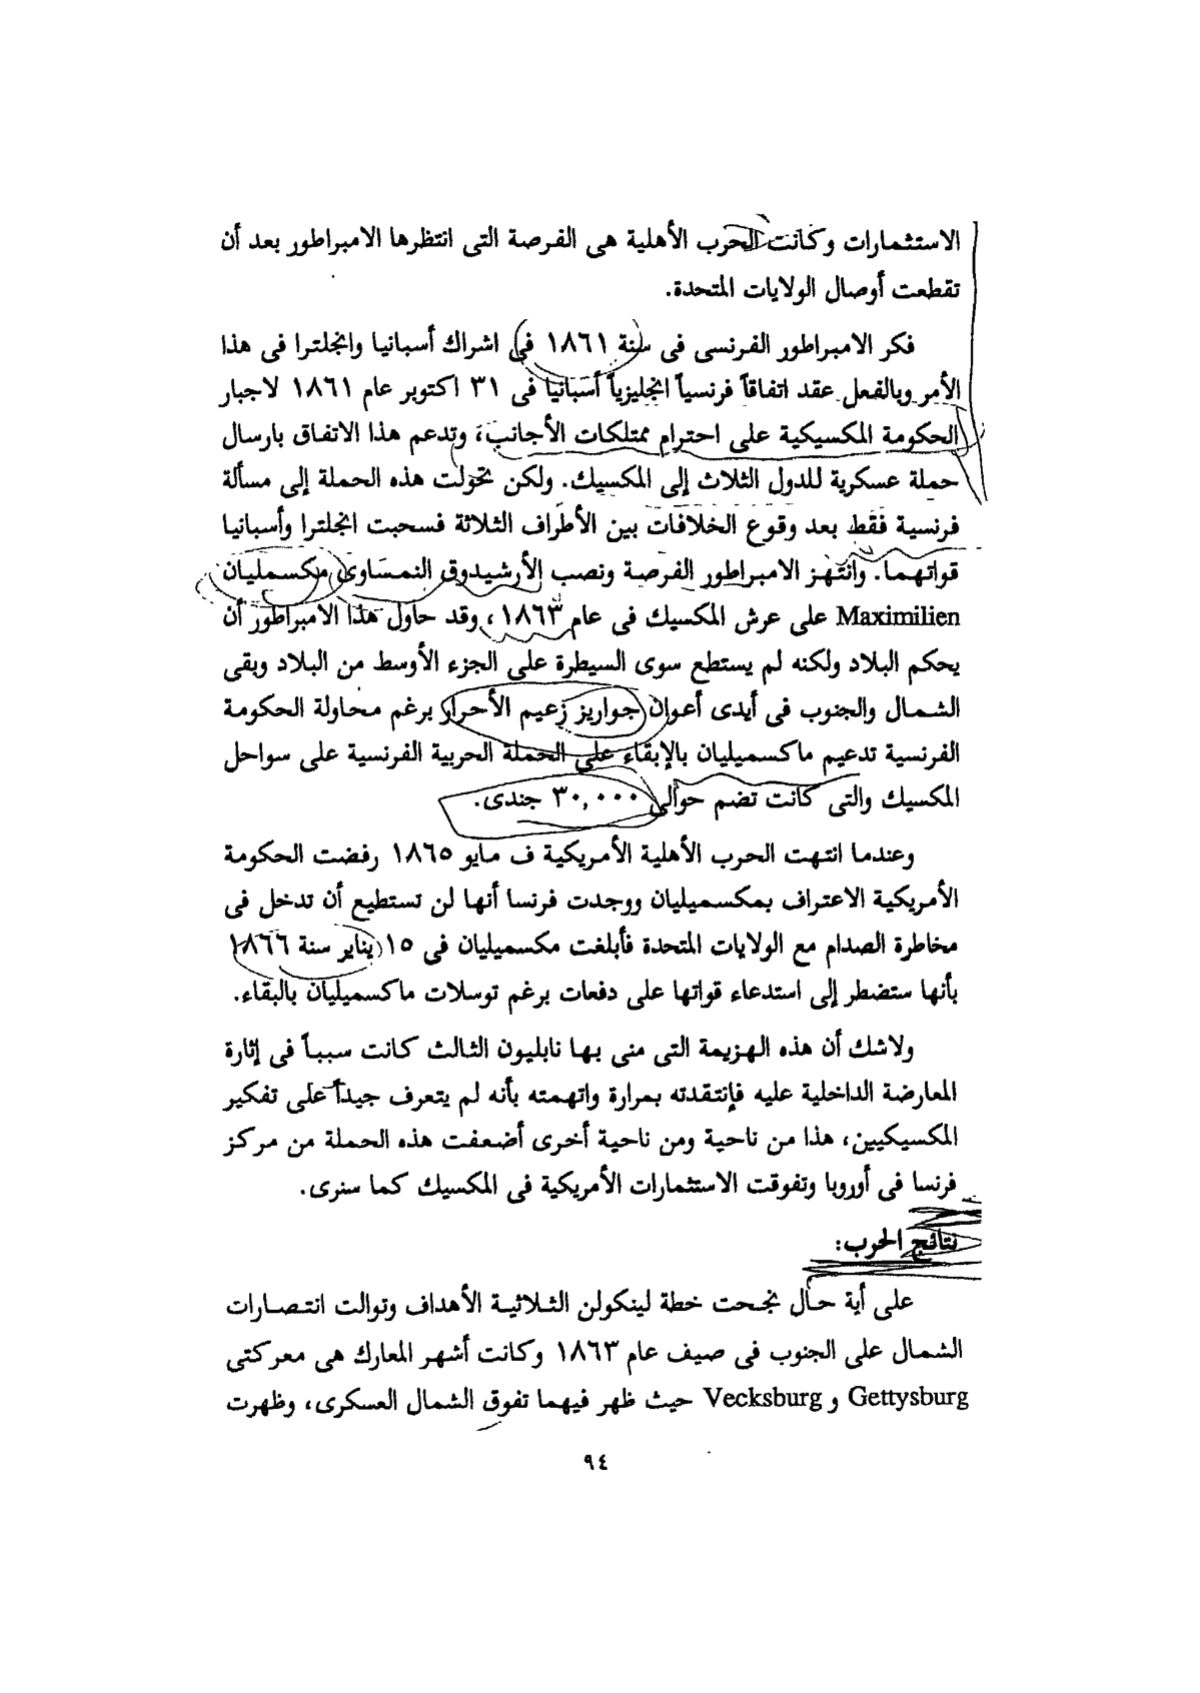 الاستثمارات وكانت الحرب الأهلية هى الفرصة التى انتظرها الامبراطور بعد أن
تقطعت أوصال الولايات المتحدة.
فكر الامبراطور الفرنسى فى سنة ١٨٦١ فى اشراك أسبانيا وانجلترا فى هذا
الأمر وبالفعل عقد اتفاقاً فرنسياً انجليزياً أسبانيا فى ٣١ اكتوبر عام ١٨٦١ لاجبار
الحكومة المكسيكية على احترام ممتلكات الأجانب، وتدعم هذا الاتفاق بارسال
حملة عسكرية للدول الثلاث إلى المكسيك. ولكن تحولت هذه الحملة إلى مسألة
فرنسية فقط بعد وقوع الخلافات بين الأطراف الثلاثة فسحبت انجلترا وأسبانيا
قواتهما. وانتهز الامبراطور الفرصة ونصب الأرشيدوق النمساوى مكسمليان
Maximilien على عرش المكسيك فى عام ١٨٦٣، وقد حاول هذا الامبراطور أن
يحكم البلاد ولكنه لم يستطع سوى السيطرة على الجزء الأوسط من البلاد وبقى
الشمال والجنوب فى أيدى أعوان جواريز زعيم الأحرار برغم محاولة الحكومة
الفرنسية تدعيم ماكسميليان بالإبقاء على الحملة الحربية الفرنسية على سواحل
المكسيك والتى كانت تضم حوالى ٣٠,٠٠٠ جندى.
وعندما انتهت الحرب الأهلية الأمريكية ف مايو ١٨٦٥ رفضت الحكومة
الأمريكية الاعتراف بمكسميليان ووجدت فرنسا أنها لن تستطيع أن تدخل فى
مخاطرة الصدام مع الولايات المتحدة فأبلغت مكسميليان فى ١٥ يناير سنة ١٨٦٦
بأنها ستضطر إلى استدعاء قواتها على دفعات برغم توسلات ماكسميليان بالبقاء.
ولاشك أن هذه الهزيمة التى منى بها نابليون الثالث كانت سبباً فى إثارة
المعارضة الداخلية عليه فإنتقدته بمرارة واتهمته بأنه لم يتعرف جيداً على تفكير
المكسيكيين، هذا من ناحية ومن ناحية أخرى أضعفت هذه الحملة من مركز
فرنسا فى أوروبا وتفوقت الاستثمارات الأمريكية فى المكسيك كما سنرى.
نتائج الحرب:
على أية حال نجحت خطة لينكولن الثلاثية الأهداف وتوالت انتصارات
الشمال على الجنوب فى صيف عام ١٨٦٣ وكانت أشهر المعارك هى معركتى
Gettysburg و Vecksburg حيث ظهر فيهما تفوق الشمال العسكرى، وظهرت
٩٤